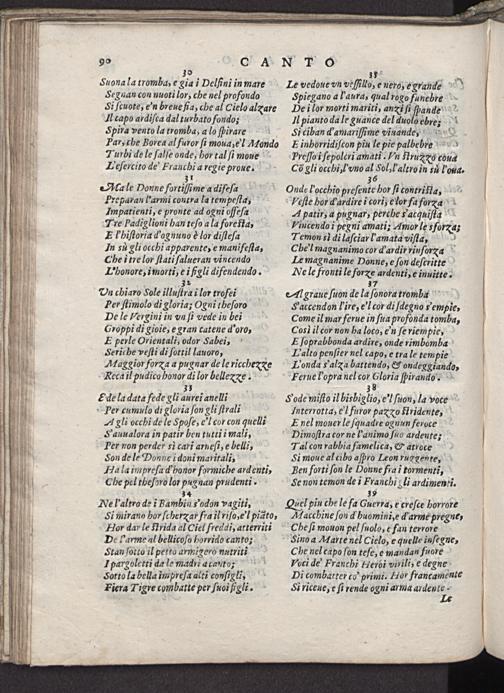 90 CANTO
30
Suona la tromba, e gia i Delfini in mare
Segnan con nuoti lor, che nel profondo
Si scuote, e'n breue fia, che al Cielo alzare
Il capo ardisca dal turbato fondo;
Spira vento la tromba, a lo spirare
Par, che Borea al furor si moua, e'l Mondo
Turbi de le salse onde, hor tal si moue
L'esercito de' Franchi a regie proue.
31
Ma le Donne fortissime a difesa
Preparan l'armi contra la tempesta,
Impatienti, e pronte ad ogni offesa
Tre Padiglioni han teso a la foresta,
E l'historia d'ognuno è lor distesa
In sù gli occhi apparente, e manifesta,
Che i tre lor stati salueran vincendo
L'honore, i morti, e i figli difendendo.
32
Vn chiaro Sole illustra i lor trofei
Per stimolo di gloria; Ogni thesoro
De le Vergini in va si vede in bei
Groppi di gioie, e gran catene d'oro,
E perle Orientali, odor Sabei,
Seriche vesti di sottil lauoro,
Maggior forza a pugnar de le ricchezze
Reca il pudico honor di lor bellezze.
33
E de la data fede gli aurei anelli
Per cumulo di gloria son gli strali
A gli occhi de le Spose, e'l cor con quelli
S'auualora in patir ben tutti i mali,
Per non perder sì cari arnesi, e belli,
Son de le Donne i doni maritali,
Ha la impresa d'honor formiche ardenti,
Che pel thesoro lor pugnan prudenti.
34
Ne l'altro de i Bambin s'odon vagiti,
Si mirano hor scherzar fra il riso, e'l piãto,
Hor dar le strida al Ciel freddi, atterriti
De l'arme al bellicoso horrido canto;
Stan sotto il petto armigero nutriti
I pargoletti da le madri a canto;
Sotto la bella impresa alti consigli,
Fiera Tigre combatte per suoi figli.
35
Le vedoue vn vessillo, e nero, e grande
Spiegano a l'aura, qual rogo funebre
De i lor morti mariti, anzi si spande
Il pianto da le guance del duolo ebre;
Si ciban d'amarissime viuande,
E inhorridiscon più le pie palpebre
Presso i sepolcri amati. Vn Struzzo coua
Cõ gli occhi, l'vno al Sol, l'altro in sù l'oua.
36
Onde l'occhio presente hor si contrista,
Veste hor d'ardire i cori, e lor fa forza
A patir, a pugnar, perche s'acquista
Vincendo i pegni amati; Amor le sforza;
Temon sì di lasciar l'amata vista,
Che'l magnanimo cor d'ardir rinforza
Le magnanime Donne, e son descritte
Ne le fronti le forze ardenti, e inuitte.
37
Al graue suon de la sonora tromba
S'accendon l'ire, e'l cor di sdegno s'empie,
Come il mar ferue in sua profonda tomba,
Così il cor non ha loco, e'n se riempie,
E soprabbonda ardire, onde rimbomba
L'alto pensier nel capo, e tra le tempie
L'onda s'alza battendo, & ondeggiando,
Ferue l'opra nel cor Gloria spirando.
38
S'ode misto il bisbiglio, e'l suon, la voce
Interrotta, e'l furor pazzo stridente,
E nel mouer le squadre ognun feroce
Dimostra cor ne l'animo suo ardente;
Tal con rabbia famelica, & atroce
Si moue al cibo aspro Leon ruggente,
Ben forti son le Donne fra i tormenti,
Se non temon de i Franchi gli ardimenti.
39
Quel piu che fe la Guerra, e cresce horrore
Macchine son d'huomini, e d'arme pregne,
Che si mouon pel suolo, e fan terrore
Sino a Marte nel Cielo, e quelle insegne,
Che nel capo son tese, e mandan fuore
Voci de' Franchi Heroi virili, e degne
Di combatter co' primi. Hor francamente
Si riceue, e si rende ogni arma ardente.
Le